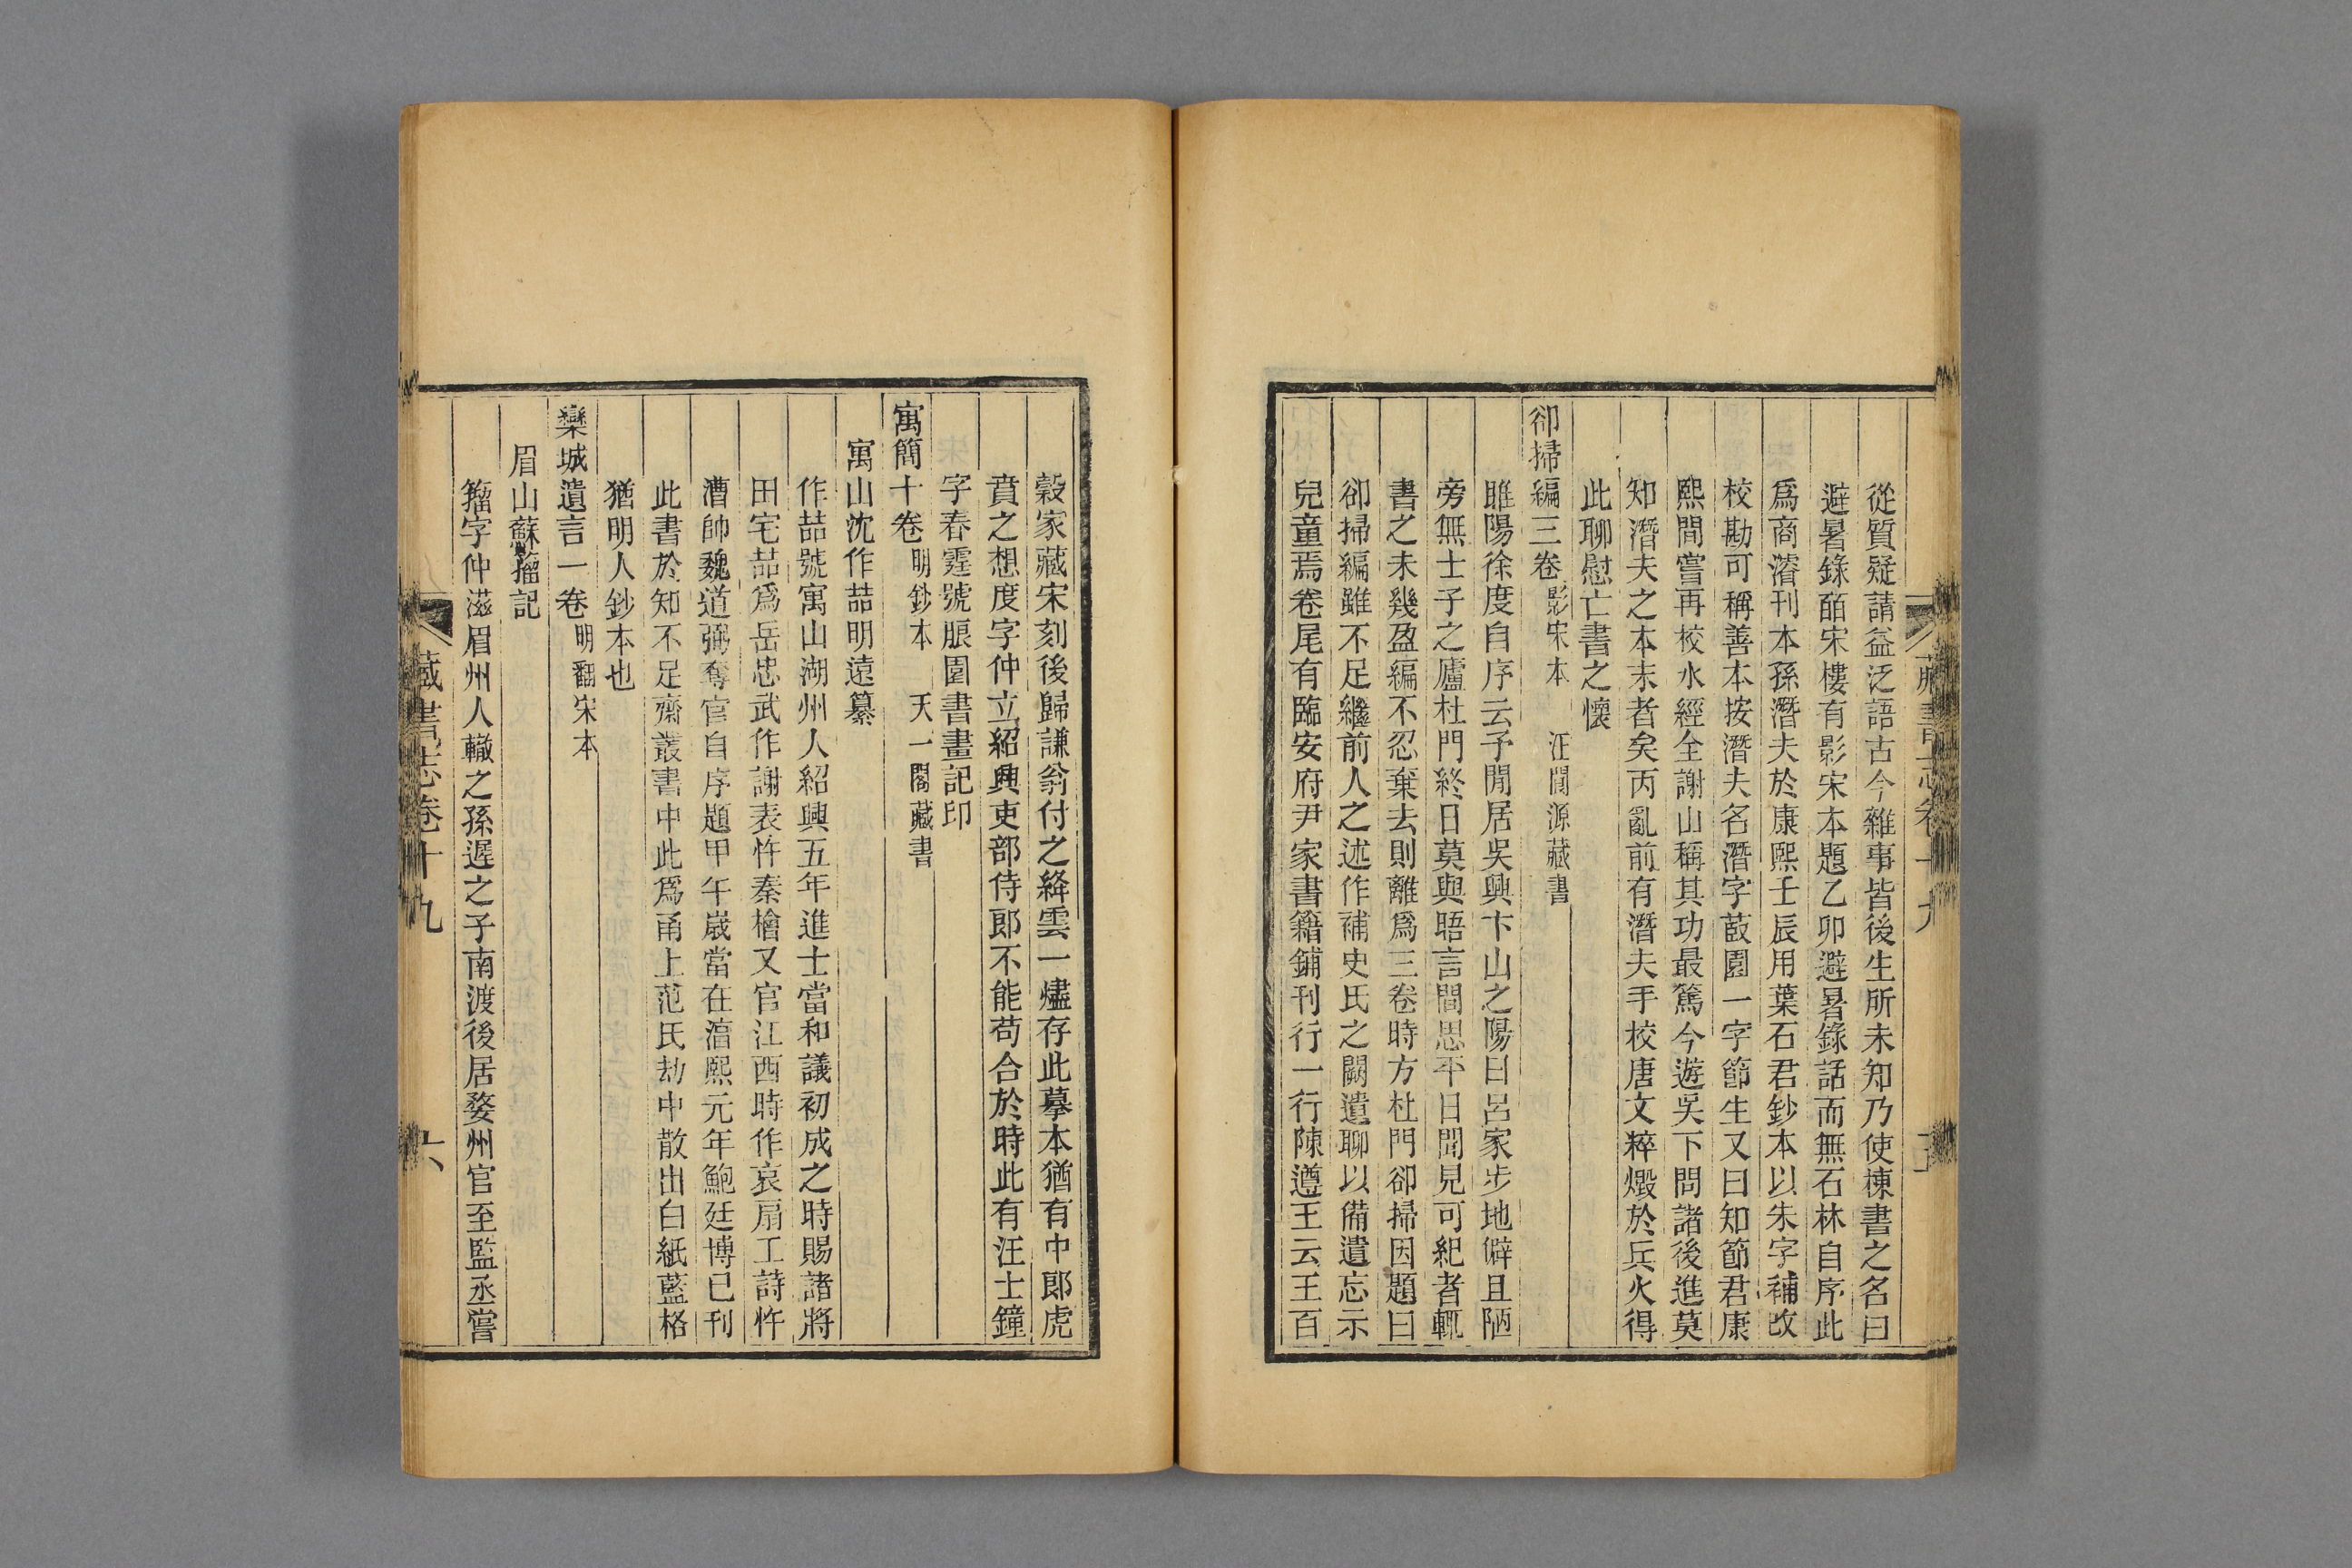 藏書志卷十九
從質疑請益泛語古今雜事皆後生所未知乃使棟書之名曰
避暑錄皕宋樓有影宋本題乙卯避暑錄話而無石林自序此
爲商濬刊本孫潛夫於康熙壬辰用葉石君鈔本以朱字補改
校勘可稱善本按潛夫名潛字菣園一字節生又曰知節君康
熙間嘗再校水經全謝山稱其功最篤今遊吳下問諸後進莫
知潛夫之本末者矣丙亂前有潛夫手校唐文粹燬於兵火得
此聊慰亡書之懷
卻掃編三卷 影宋本 汪閬源藏書
睢陽徐度自序云予閒居吳興卞山之陽曰呂家步地僻且陋
旁無士子之廬杜門終日莫與晤言間思平日聞見可紀者輒
書之未幾盈編不忍棄去則離爲三卷時方杜門卻掃因題曰
卻掃編雖不足繼前人之述作補史氏之闕遺聊以備遺忘示
兒童焉卷尾有臨安府尹家書籍鋪刊行一行陳遵王云王百
穀家藏宋刻後歸謙翁付之絳雲一燼存此摹本猶有中郎虎
賁之想度字仲立紹興吏部侍郎不能苟合於時此有汪士鐘
字春霆號脤園書畫記印
寓簡十卷 明鈔本 天一閣藏書
寓山沈作喆明遠纂
作喆號寓山湖州人紹興五年進士當和議初成之時賜諸將
田宅喆爲岳忠武作謝表忤秦檜又官江西時作哀扇工詩忤
漕帥魏道弼奪官自序題甲午歲當在淳熙元年鮑廷博已刊
此書於知不足齋叢書中此爲甬上范氏劫中散出白紙藍格
猶明人鈔本也
欒城遺言一卷 明翻宋本
眉山蘇籀記
籀字仲滋眉州人轍之孫遲之子南渡後居婺州官至監丞嘗
藏書志卷十九
六